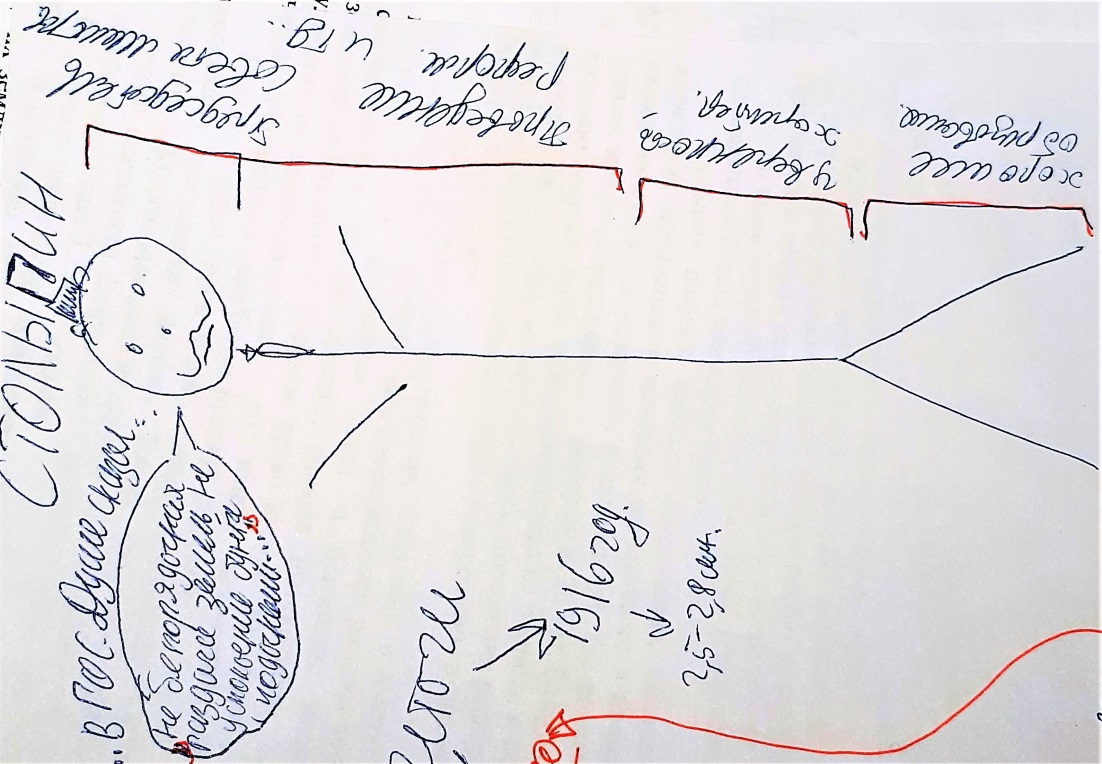 СТОЛЫПИН
Председатель
Совета министр
Проведение
Реформ.
и тд.
уверенность
характер.
хорошее
образование.
.. В ГОС. Думе сказал..:
не беспорядочная
раздача земель, не
успокоение бунта
подачками..."
Итоги
1916 год.
2,5-2,8 млн.